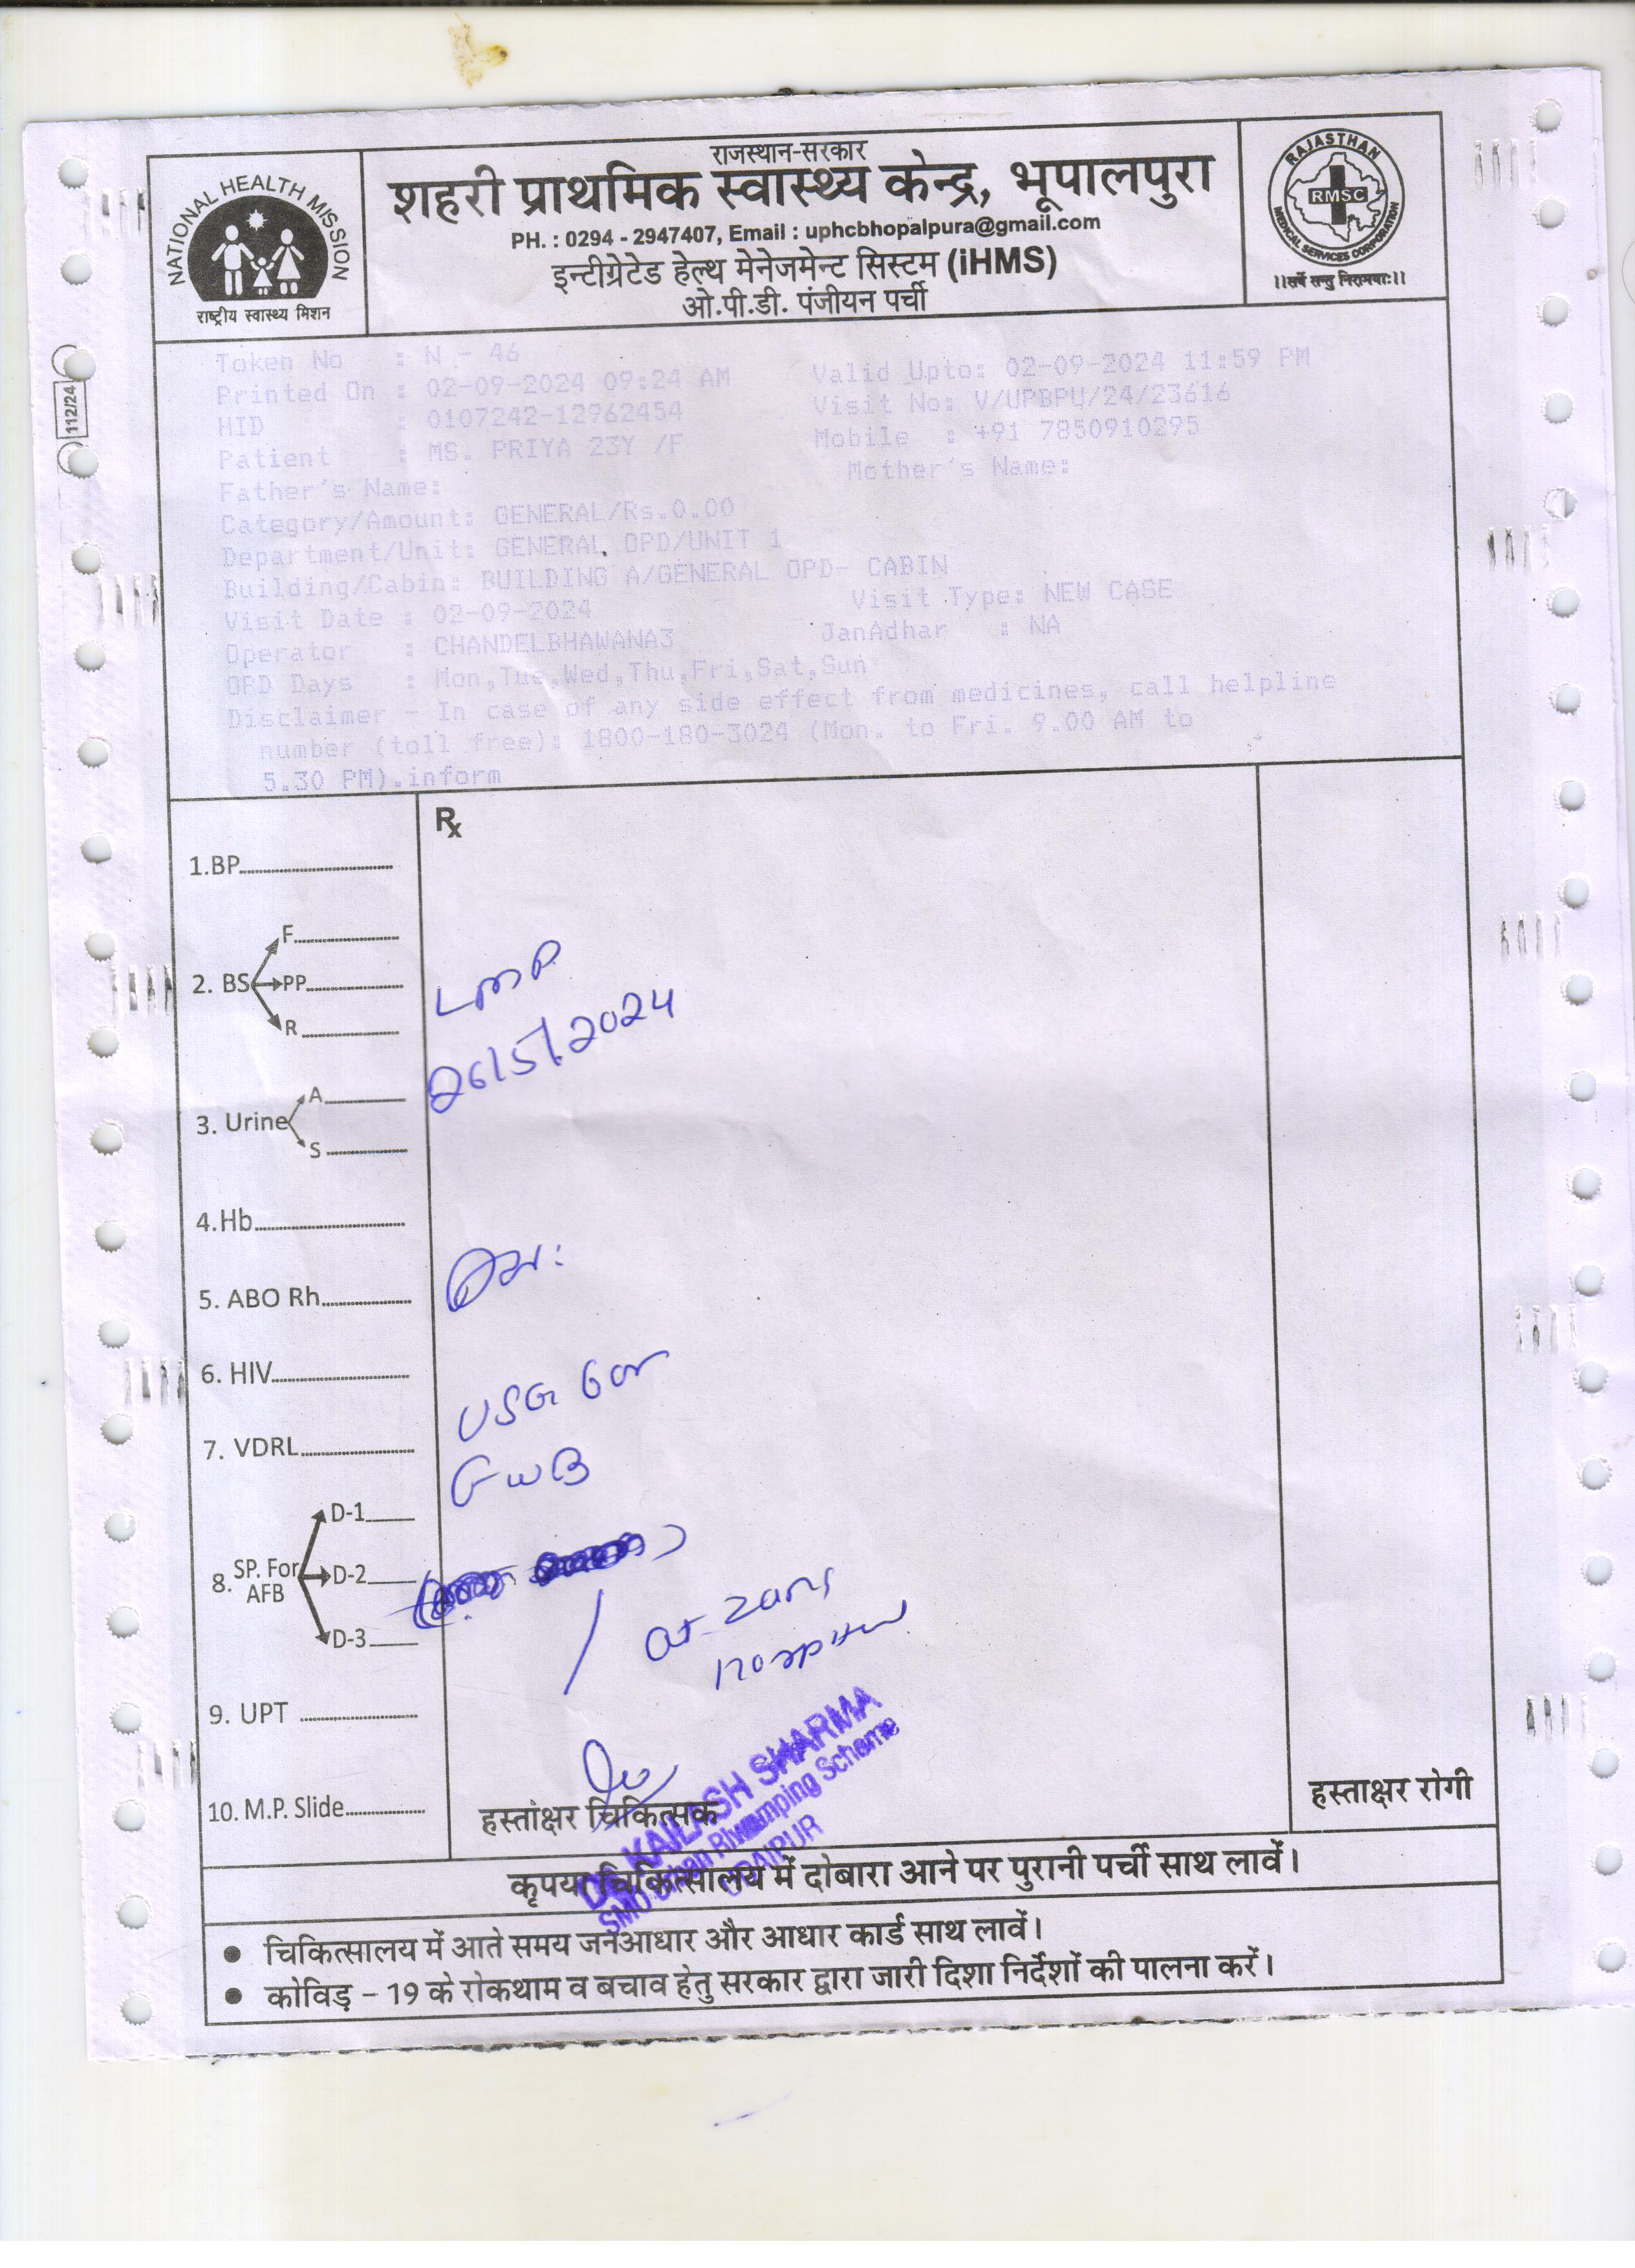 NATIONAL HEALTH MISSION
राष्ट्रीय स्वास्थ्य मिशन
राजस्थान-सरकार
शहरी प्राथमिक स्वास्थ्य केन्द्र, भूपालपुरा
PH. : 0294 - 2947407, Email : uphcbhopalpura@gmail.com
इन्टीग्रेटेड हेल्थ मेनेजमेन्ट सिस्टम (iHMS)
ओ.पी.डी. पंजीयन पर्ची
RAJASTHAN
RMSC
MEDICAL SERVICES CORPORATION
।।सर्वे सन्तु निरामयाः।।
112/24
Token No : N - 46
Printed On : 02-09-2024 09:24 AM Valid Upto: 02-09-2024 11:59 PM
HID : 0107242-12962454 Visit No: V/UPBPU/24/23616
Patient : MS. PRIYA 23Y /F Mobile : +91 7850910295
Father's Name: Mother's Name:
Category/Amount: GENERAL/Rs.0.00
Department/Unit: GENERAL OPD/UNIT 1
Building/Cabin: BUILDING A/GENERAL OPD- CABIN
Visit Date : 02-09-2024 Visit Type: NEW CASE
Operator : CHANDELBHAWANA3 JanAdhar : NA
OPD Days : Mon,Tue,Wed,Thu,Fri,Sat,Sun
Disclaimer - In case of any side effect from medicines, call helpline
number (toll free): 1800-180-3024 (Mon. to Fri. 9.00 AM to
5.30 PM).inform
Rx
1.BP
2. BS F
PP
R
LMP
26/5/2024
3. Urine A
S
4.Hb
5. ABO Rh
6. HIV
USG for
7. VDRL
FWB
8. SP. For AFB D-1
D-2
D-3
9. UPT
10. M.P. Slide
हस्तांक्षर चिकित्सक
हस्ताक्षर रोगी
KAILASH SHARMA
Scheme
कृपया चिकित्सालय में दोबारा आने पर पुरानी पर्ची साथ लावें।
• चिकित्सालय में आते समय जनआधार और आधार कार्ड साथ लावें।
• कोविड़ – 19 के रोकथाम व बचाव हेतु सरकार द्वारा जारी दिशा निर्देशों की पालना करें।